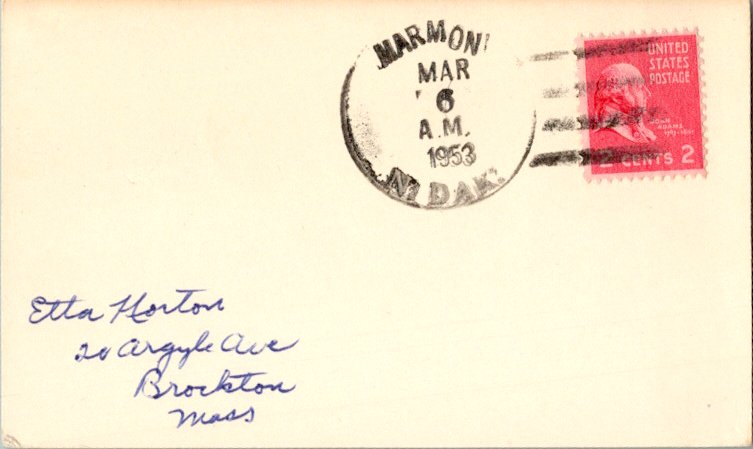 MARMON
MAR
6
A.M.
1953
N. DAK.
UNITED
STATES
POSTAGE
JOHN
ADAMS
CENTS 2
Etta Horton
20 Argyle Ave
Brockton
Mass